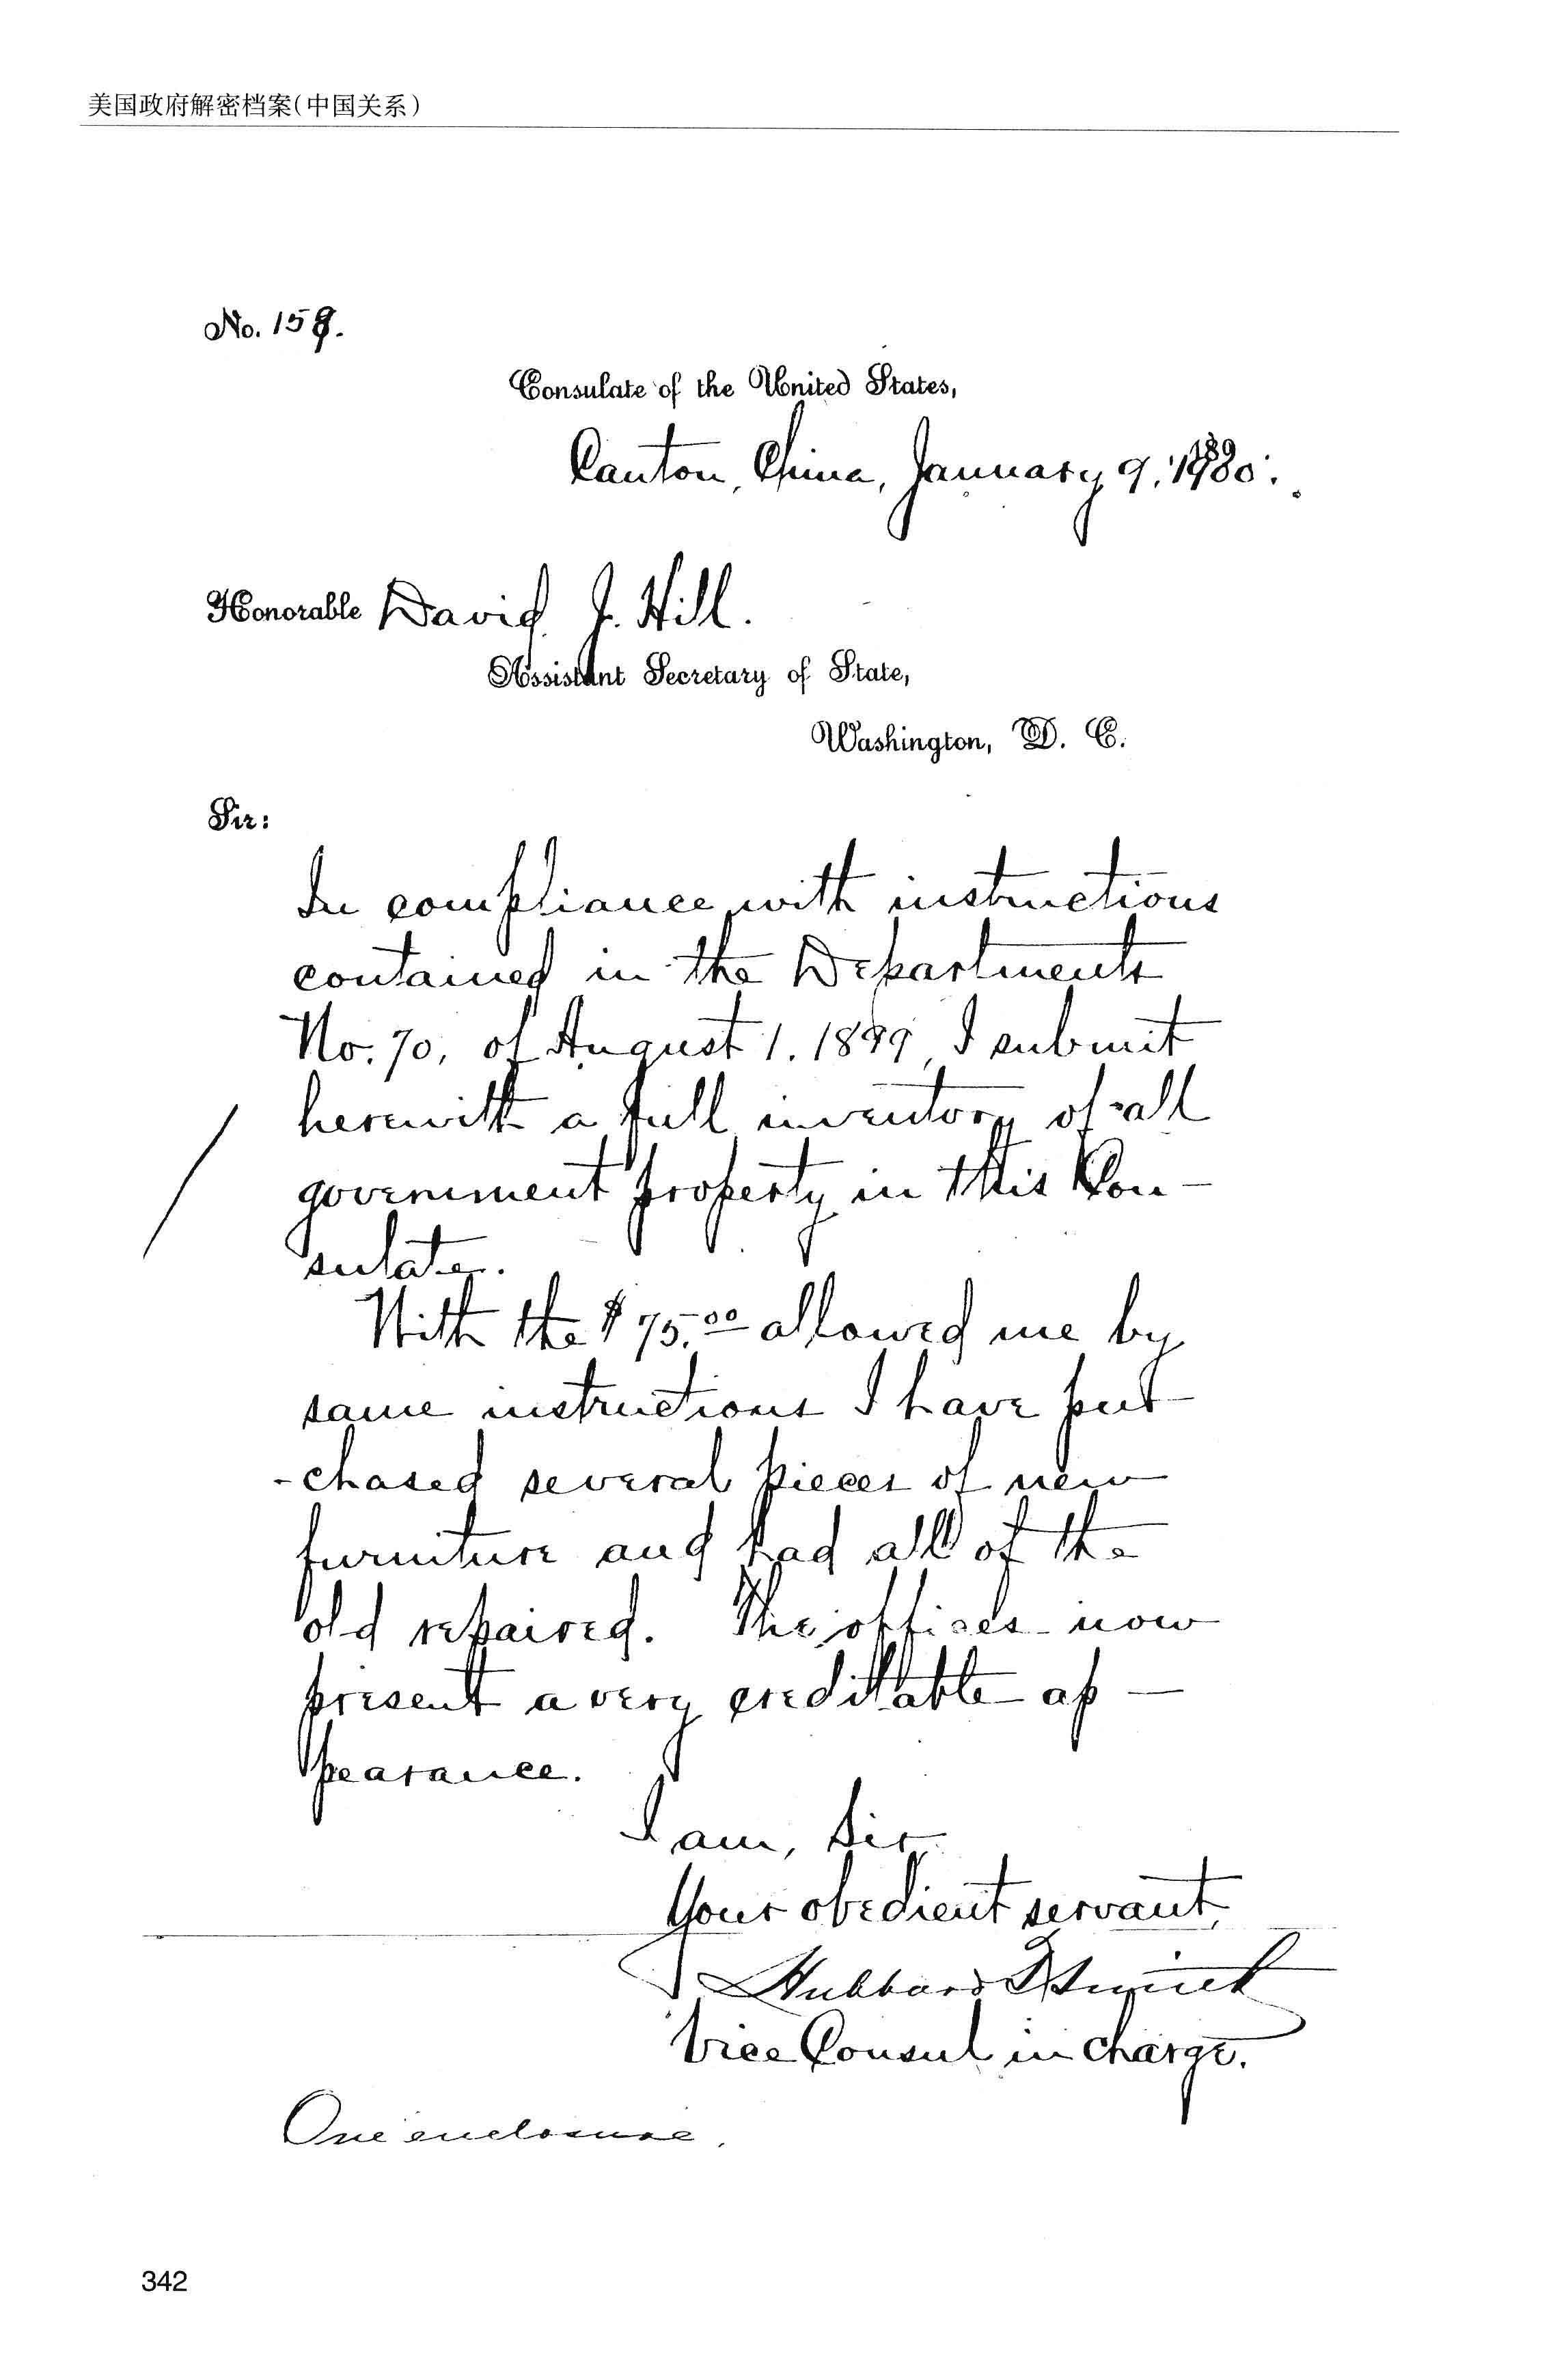 美国政府解密档案(中国关系)
No. 159.
Consulate of the United States,
Canton, China, January 9,
Honorable David J. Hill.
Assistant Secretary of State,
Washington, D. C.
Sir:
In compliance with instructions
contained in the Departments
No. 70, of August 1. 1899, I submit
herewith a full inventory of all
government property in this Con-
sulate.
With the $75.00 allowed me by
same instructions I have pur-
-chased several pieces of new
furniture and had all of the
old repaired. The offices now
present a very creditable ap-
pearance.
I am, Sir,
Your obedient servant,
Hubbard T. Smith
Vice Consul in charge.
One enclosure.
342